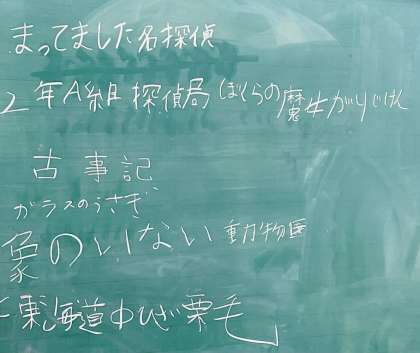 まってました名探偵
2年A組探偵局 ぼくらの魔女がりじけん
古事記
ガラスのうさぎ
象のいない動物園
東海道中ひざ栗毛